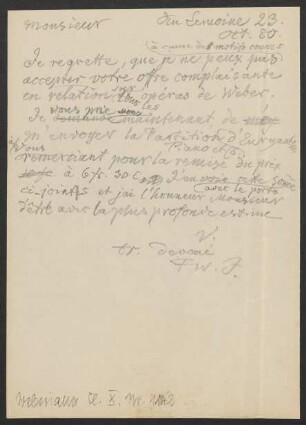 Monsieur
23.
Oct. 80.
(à cause des motifs connus
Je regrette, que je ne peux pas
accepter votre offre complaisante
en relation sur les opéras de Weber.
Je vous prie maintenant de
m'envoyer la Partition d'Euryante
Piano
vous
remerciant pour la remise du prix
à 6 fr. 50 C
avec le porto
ci-joint et j'ai l'honneur Monsieur
d'être avec la plus profonde estime
V.
tr. devoué
F W. J.
Weberiana Cl. X, Nr.